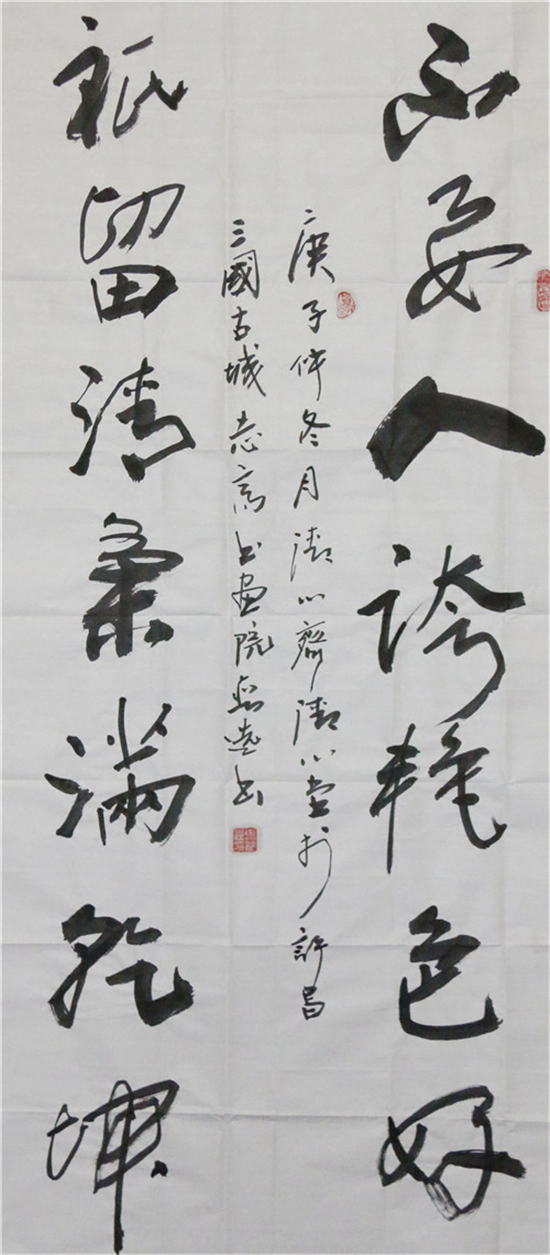 不要人誇艳色好
庚子仲冬月清心齋清心堂於許昌
三國古城志高书画院志遠书
祇留清氣滿乾坤